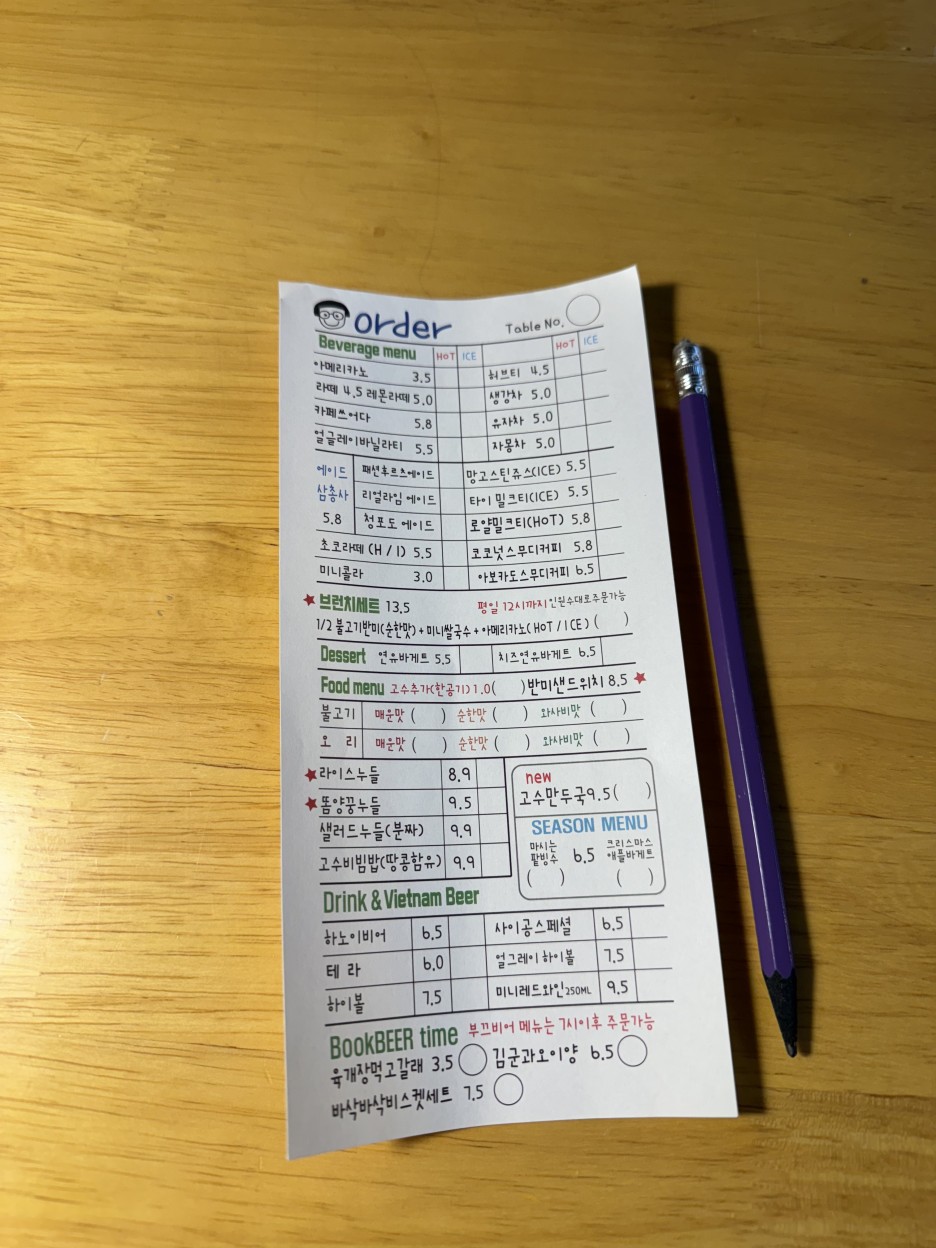 order Table No.
Beverage menu HOT ICE HOT ICE
아메리카노 3.5 허브티 4.5
라떼 4.5 레몬라떼 5.0 생강차 5.0
카페쓰어다 5.8 유자차 5.0
얼글레이바닐라티 5.5 자몽차 5.0
에이드 패션후르츠에이드 망고스틴쥬스(ICE) 5.5
삼총사 리얼라임 에이드 타이 밀크티(ICE) 5.5
5.8 청포도 에이드 로얄밀크티(HOT) 5.8
초코라떼 (H / I) 5.5 코코넛스무디커피 5.8
미니콜라 3.0 아보카도스무디커피 6.5
브런치세트 13.5 평일 12시까지 인원수대로주문가능
1/2 불고기반미(순한맛) + 미니쌀국수 + 아메리카노( HOT / ICE ) ( )
Dessert 연유바게트 5.5 치즈연유바게트 6.5
Food menu 고수추가(한공기) 1.0( ) 반미샌드위치 8.5
불고기 매운맛 ( ) 순한맛 ( ) 와사비맛 ( )
오 리 매운맛 ( ) 순한맛 ( ) 와사비맛 ( )
라이스누들 8.9
똠양꿍누들 9.5
샐러드누들(분짜) 9.9
고수비빔밥(땅콩함유) 9.9
new
고수만두국9.5( )
SEASON MENU
마시는 팥빙수 6.5 크리스마스 애플바게트
( ) ( )
Drink & Vietnam Beer
하노이비어 6.5 사이공스페셜 6.5
테 라 6.0 얼그레이 하이볼 7.5
하이볼 7.5 미니레드와인250ML 9.5
BookBEER time 부끄비어 메뉴는 7시이후 주문가능
육개장먹고갈래 3.5 김군과오이양 6.5
바삭바삭비스켓세트 7.5